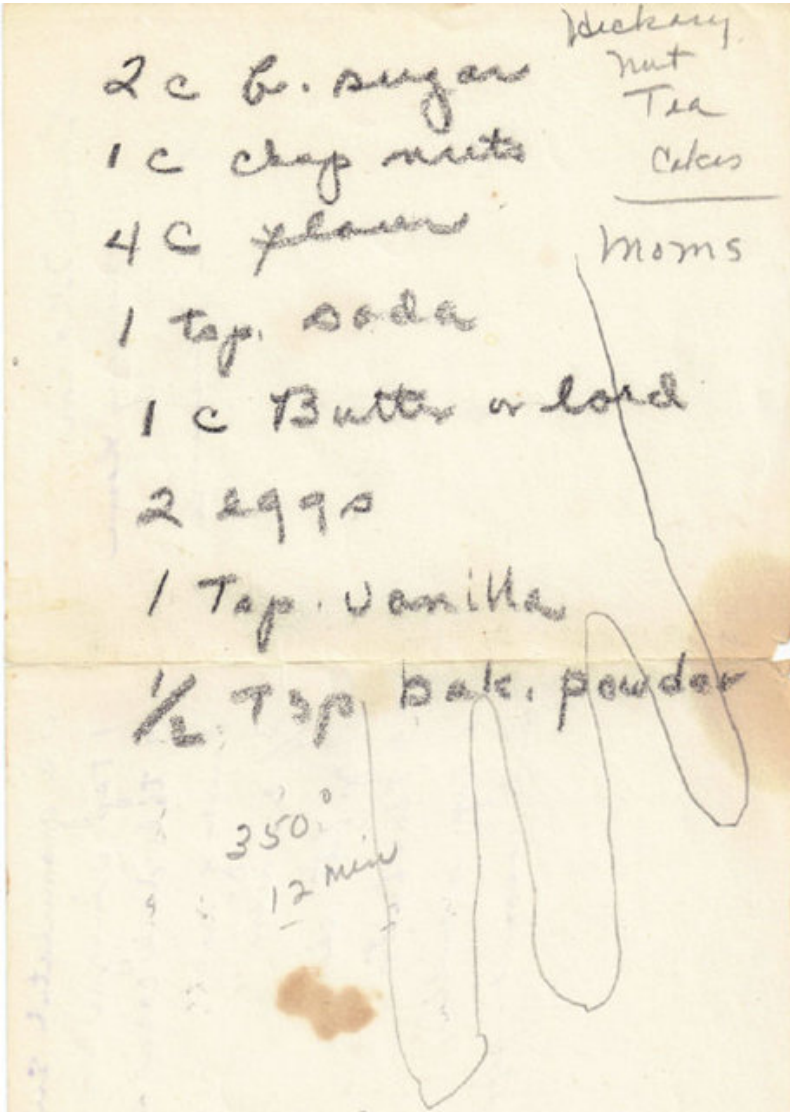 Hickory
nut
Tea
Cakes
Moms
2 c b. sugar
1 c chop nuts
4 c flour
1 tsp. soda
1 c Butter or lard
2 eggs
1 Tsp. vanilla
1/2 Tsp bak. powder
350°
12 min